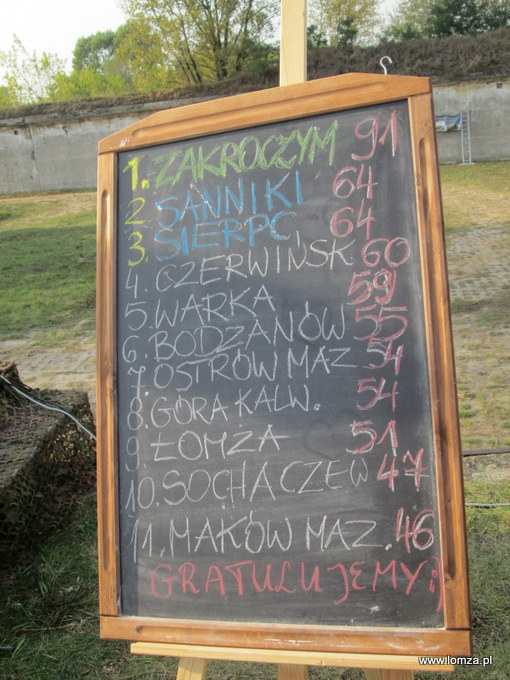 1. ZAKROCZYM 91
2. SANNIKI 64
3. SIERPC 64
4. CZERWIŃSK 60
5. WARKA 59
6. BODZANÓW 55
7. OSTRÓW MAZ 54
8. GÓRA KALW. 54
9. ŁOMŻA 51
10. SOCHACZEW 47
11. MAKÓW MAZ. 46
GRATULUJEMY :)
www.lomza.pl